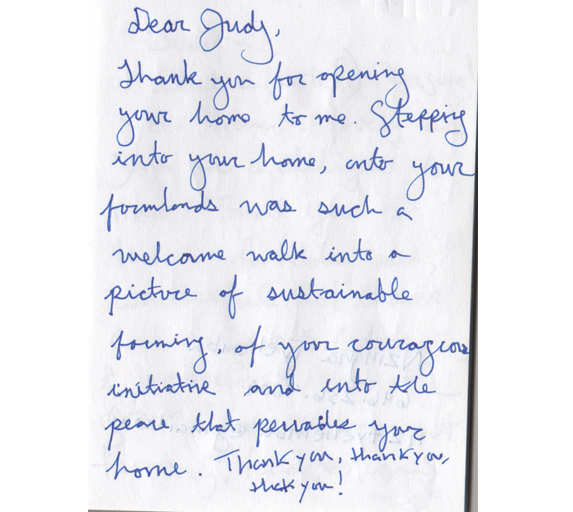 Dear Judy,
Thank you for opening
your home to me. Stepping
into your home, onto your
farmlands was such a
welcome walk into a
picture of sustainable
farming, of your courageous
initiative and into the
peace that pervades your
home. Thank you, thank you,
thank you!